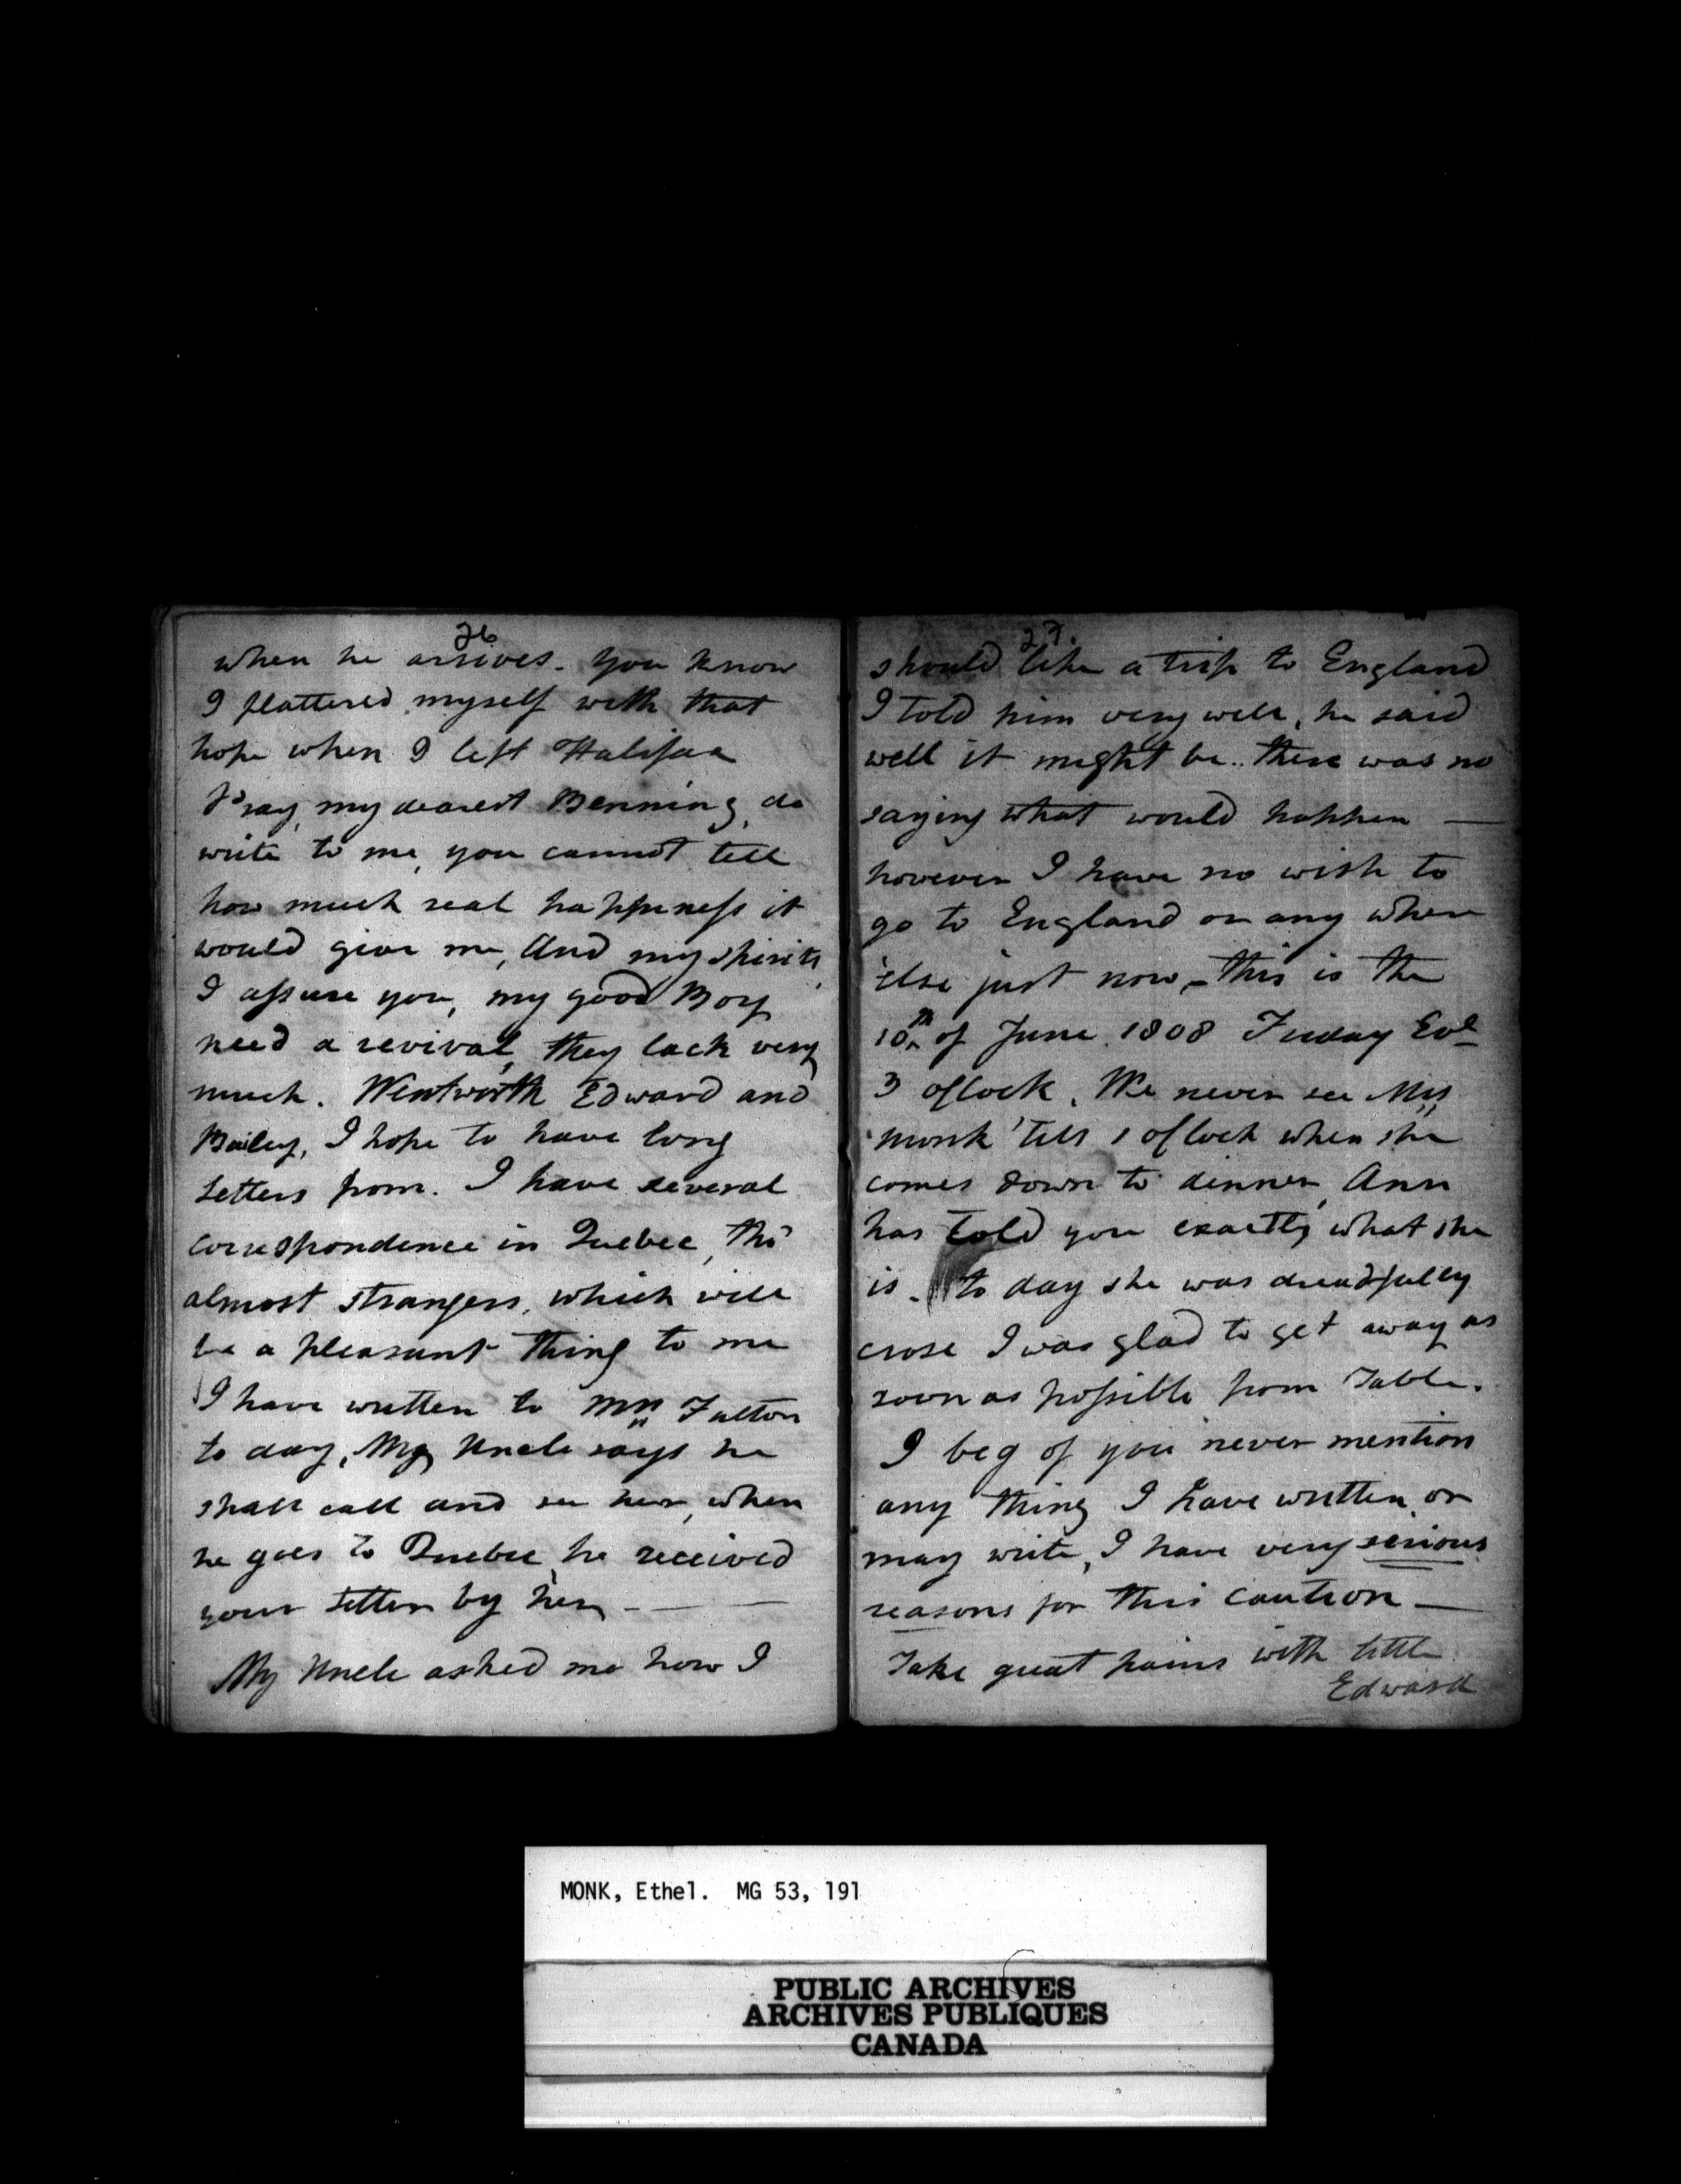 26
when he arrives. You know
I flattered myself with that
hope when I left Halifax
Pray, my dearest Benning, do
write to me, you cannot tell
how much real happiness it
would give me, And my spirits,
I assure you, my good Boy
need a revival, they lack very
much. Wentworth Edward and
Bailey, I hope to have long
Letters from. I have several
correspondence in Quebec, tho'
almost strangers, which will
be a pleasant thing to me
I have written to Mrs Fulton
to day, My Uncle says he
shall call and see her, when
he goes to Quebec, he received
your Letter by her — — —
My Uncle asked me how I
27.
should like a trip to England
I told him very well, he said
well it might be.. there was no
saying what would happen —
however I have no wish to
go to England or any where
else just now, - this is the
10th of June 1808 Friday Eve
3 o'Clock. We never see Mrs
Monk 'till 1 o'Clock when she
comes down to dinner, Ann
has told you exactly what she
is. to day she was dreadfully
cross I was glad to get away as
soon as possible from Table.
I beg of you never mention
any thing I have written or
may write, I have very serious
reasons for this caution —
Take great pains with little
Edward
MONK, Ethel. MG 53, 191
PUBLIC ARCHIVES
ARCHIVES PUBLIQUES
CANADA